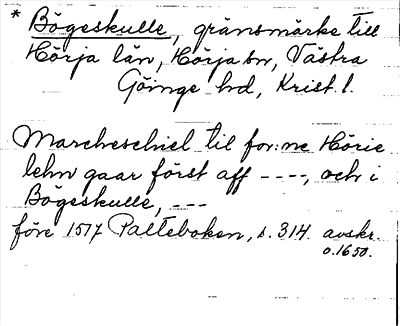 * Bögeskulle, gränsmärke till
Hörja län, Hörja sn, Västra
Göinge hd, Krist. l.
Marcheschiel til for:ne Hörie
lehn gaar först aff ----, och i
Bögeskulle, ---
före 1517 Palteboken, s. 314. avskr.
o. 1650.